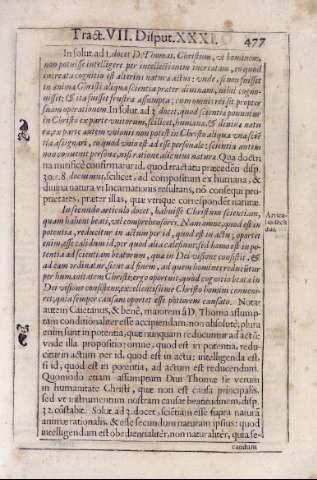 Tract. VII. Disput. XXXI. 477
In solut. ad 1. docet D. Thomas, Christum, vt hominem,
non potuisse intelligere per intellectionem increatam, eo quod
increata cognitio est alterius natura actus: vnde, si non fuisset
in anima Christi aliqua scientia præter diuinam, nihil cogno-
uisset: & ita fuisset frustra assumpta; cum omnis res sit propter
suam operationem. In solut. ad 3. docet, quod scientia ponuntur
in Christo ex parte vnitorum, scilicet, humanæ, & diuinæ natu
ræ; ex parte autem vnionis non potest in Christo aliqua vna scien
tia assignari, eo quod vnio est ad esse personale: scientia autem
non conuenit persona, nisi ratione alicuius natura. Qua doctri
na mirificè confirmatur id, quod tractatu præceden disp.
30. n. 8. docuimus, scilicet, ad compositum ex humana, &
diuina natura vi Incarnationis resultans, nō consequi pro-
prietates, præter illas, quæ vtrique correspondet naturæ.
In secundo articulo docet, habuisse Christum scientiam,
quam habent beati, vel comprehensores. Nam omne, quod est in
potentia, reducitur in actum per id, quod est in actu; oportet
enim esse calidum id, per quod alia calefiunt, sed homo est in po-
tentia ad scientiam beatorum, quæ in Dei visione consistit, &
ad eam ordinatur, sicut ad finem, ad quem homines reducūtur
per humanitatem Christi; ergo oportuit, quod cognitio beata in
Dei visione consistens, excellentissimè Christo homini conueni-
ret, quia semper causam oportet esse potiorem causato. Notat
autem Caietanus, & benè, maiorem à D. Thoma assump-
tam conditionaliter esse accipiendam, non absolutè; plura
enim sunt in potentia, quæ nunquam reducuntur ad actū:
vnde illa propositio; omne, quod est in potentia, redu-
citur in actum per id, quod est in actu; intelligenda est,
si id, quod est in potentia, ad actum est reducendum.
Quomodo etiam assumptum Diui Thomæ sit verum
in humanitate Christi, quæ non est causa principalis,
sed vt instrumentum nostram causat beatitudinem, disp.
32. cōstabit. Solut. ad 2. docet, sciētiam esse supra naturā
animæ rationalis, & esse secundum naturam ipsius: quod
intelligendum est obedientialiter, non naturaliter, quia se-
candum